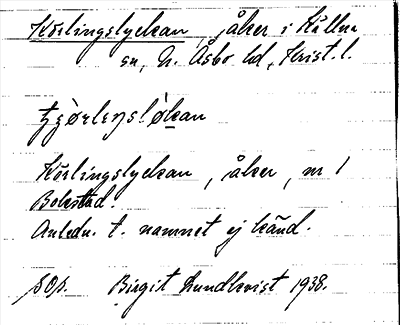 Körlingslyckan, åker i Källna
sn, N. Åsbo hd, Krist. l.
Körlingslyckan, åker, nr 1
Bokestad.
Anledn. t. namnet ej känd.
SOp. Birgit Lundkvist 1938.